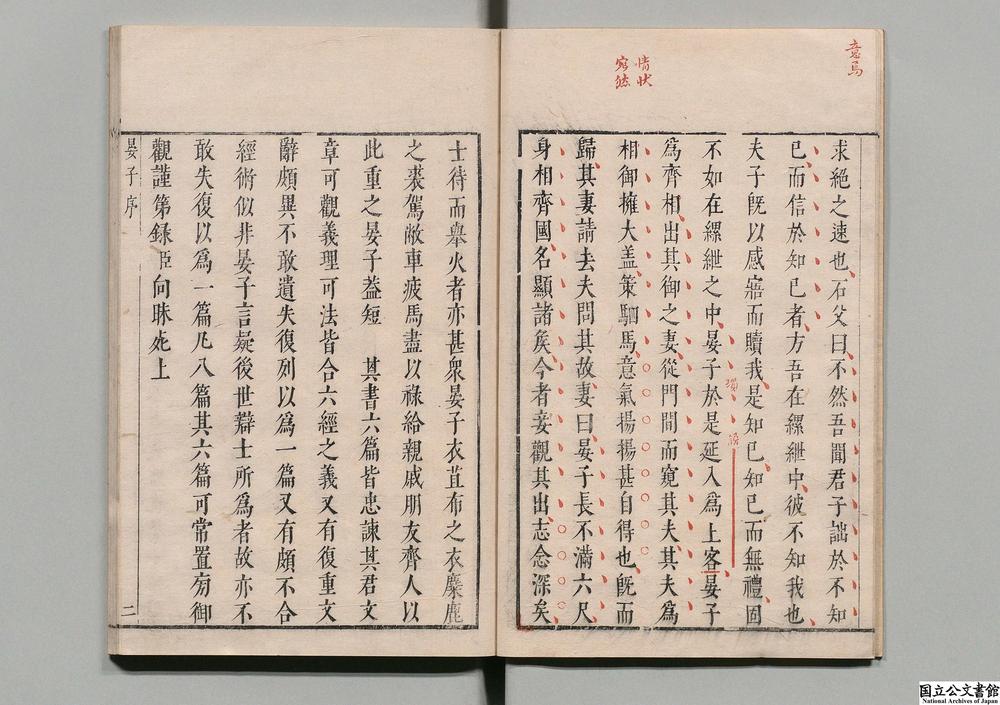 意
情状
宛然
求絕之速也石父曰不然吾聞君子詘於不知
已而信於知已者方吾在縲紲中彼不知我也
夫子旣以感寤而贖我是知已知已而無禮固
不如在縲紲之中晏子於是延入爲上客晏子
爲齊相出其御之妻從門間而窺其夫其夫爲
相御擁大盖策駟馬意氣揚揚甚自得也旣而
歸其妻請去夫問其故妻曰晏子長不滿六尺
身相齊國名顯諸矦今者妾觀其出志念深矣
士待而舉火者亦甚衆晏子衣苴布之衣麋鹿
之裘駕敝車疲馬盡以祿給親戚朋友齊人以
此重之晏子葢短 其書六篇皆忠諫其君文
章可觀義理可法皆合六經之義又有復重文
辭頗異不敢遺失復列以爲一篇又有頗不合
經術似非晏子言疑後世辯士所爲者故亦不
敢失復以爲一篇凡八篇其六篇可常置旁御
觀謹第錄臣向昧死上
晏子序
二
国立公文書館
National Archives of Japan